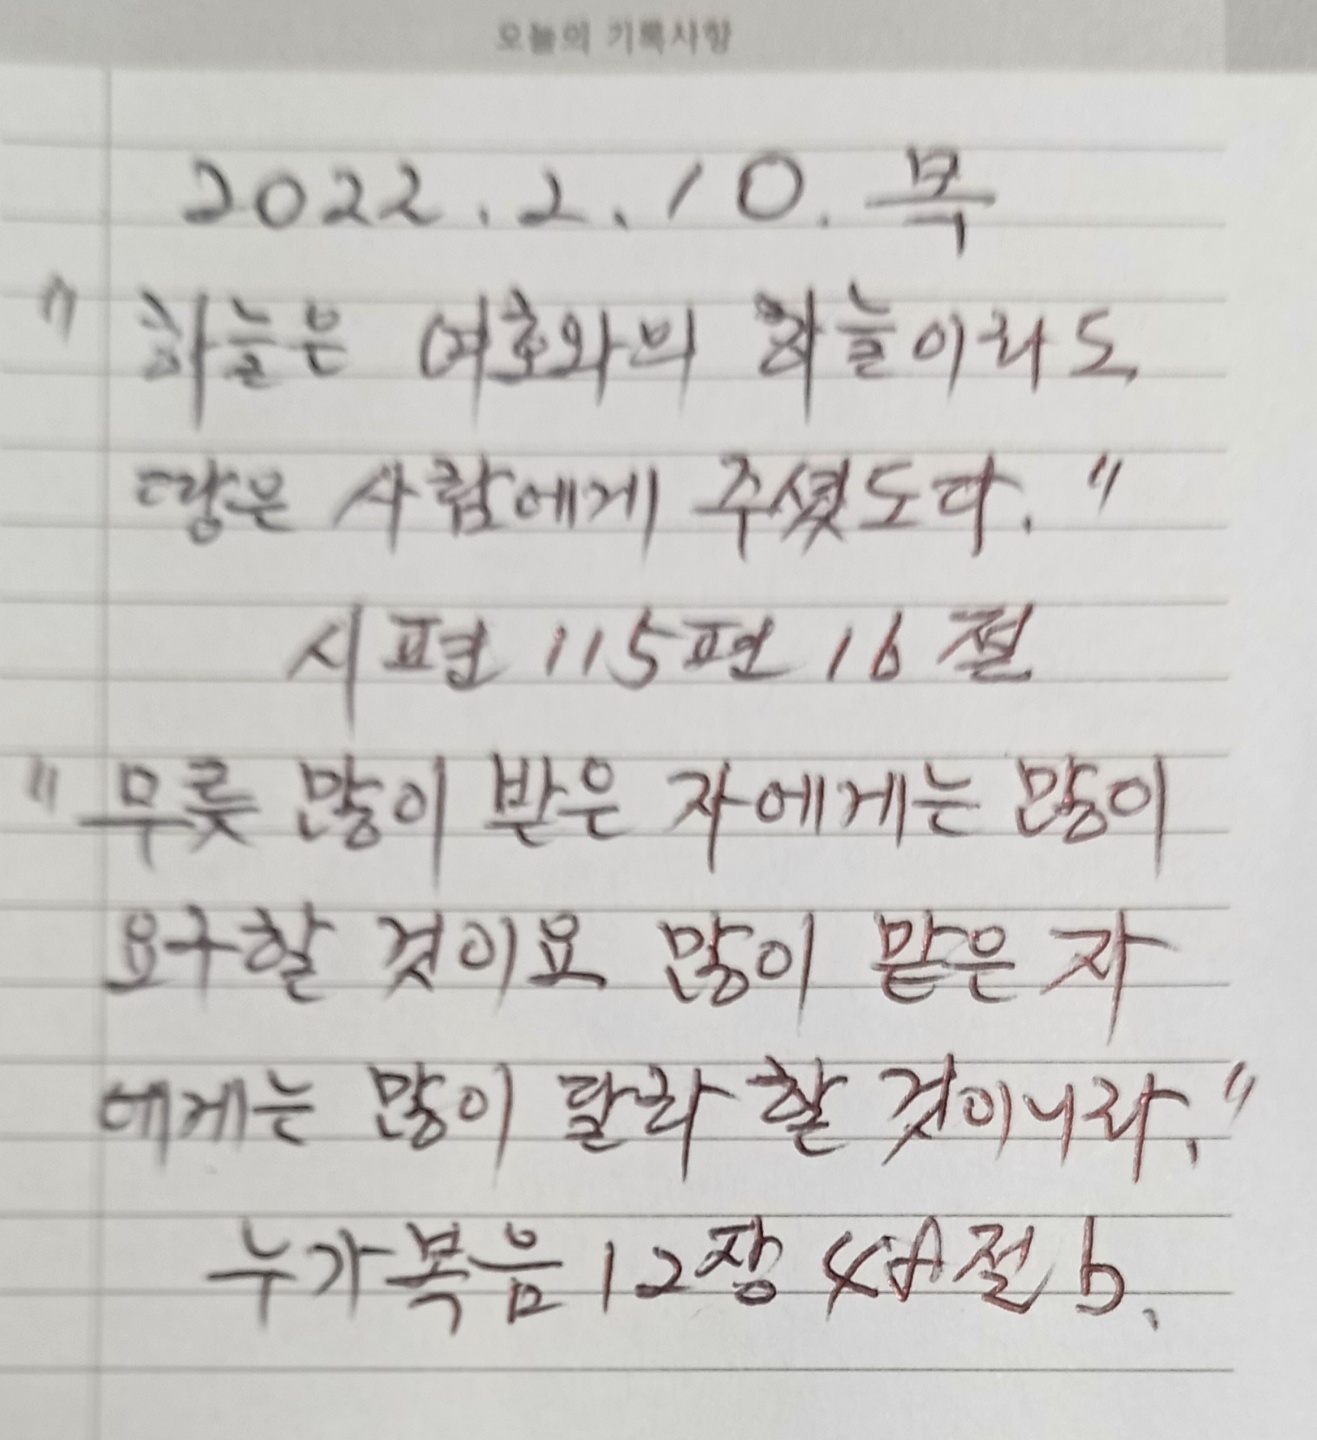 오늘의 기록사항
2022. 2. 10. 목
"하늘은 여호와의 하늘이라도
땅은 사람에게 주셨도다."
시편 115편 16절
"무릇 많이 받은 자에게는 많이
요구할 것이요 많이 맡은 자
에게는 많이 달라 할 것이니라."
누가복음 12장 48절 b.